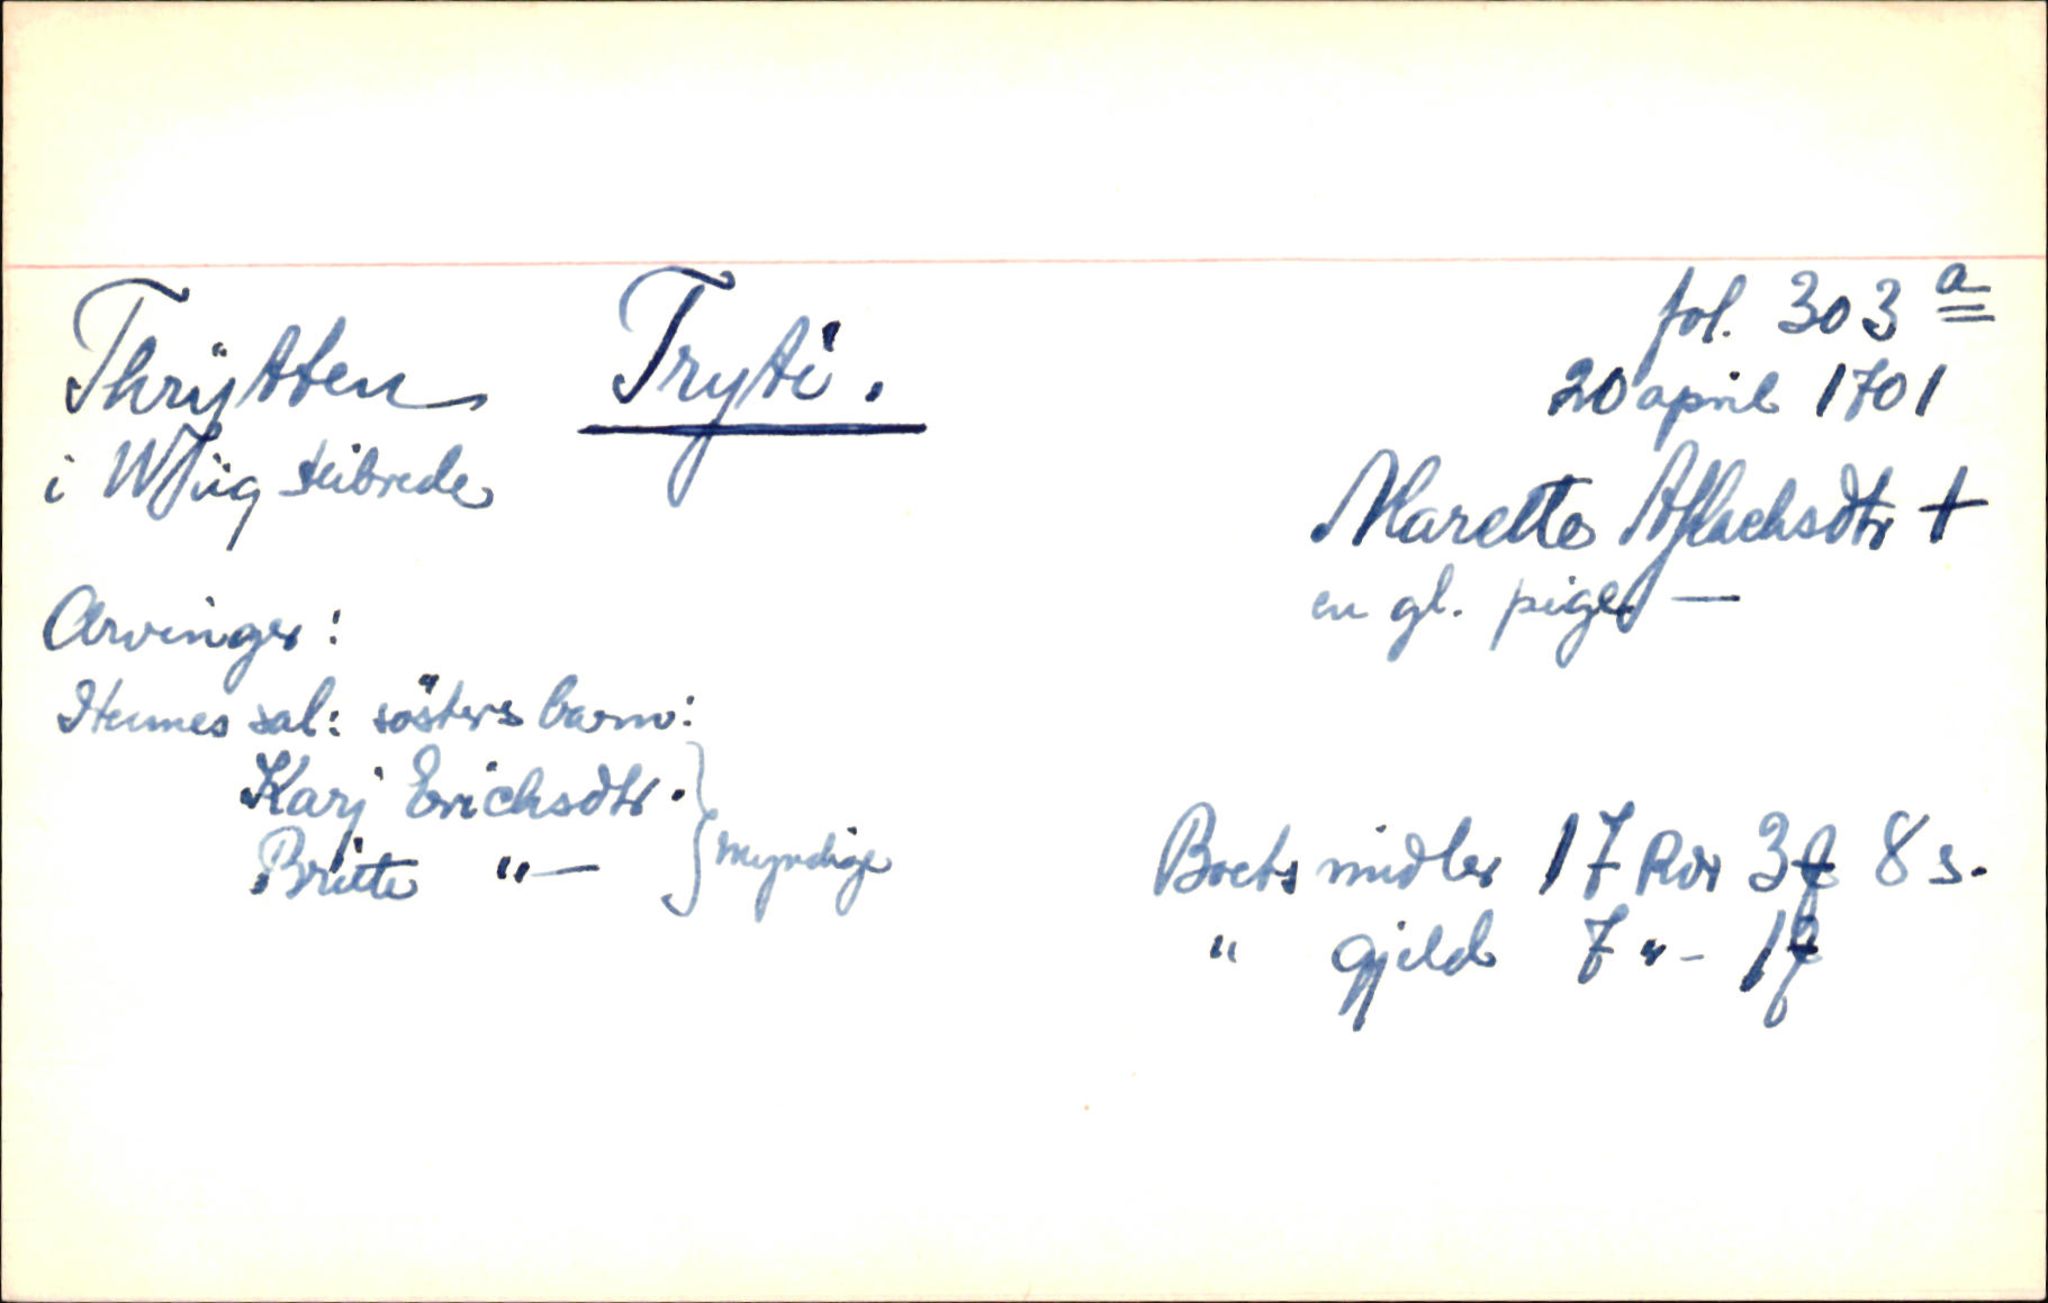 Thrÿtten Tryti.
i Wüg skibrede
fol. 303 a
20 april 1701
Marette Aslachsdtr +
en gl. pige —
Arvinger:
Hennes sal: søsters barn:
Karj Erichsdtr.
Britte "— } myndige
Boets midler 17 Rdr 3 ƒ 8 s.
" gjeld 7 " - 1 ƒ